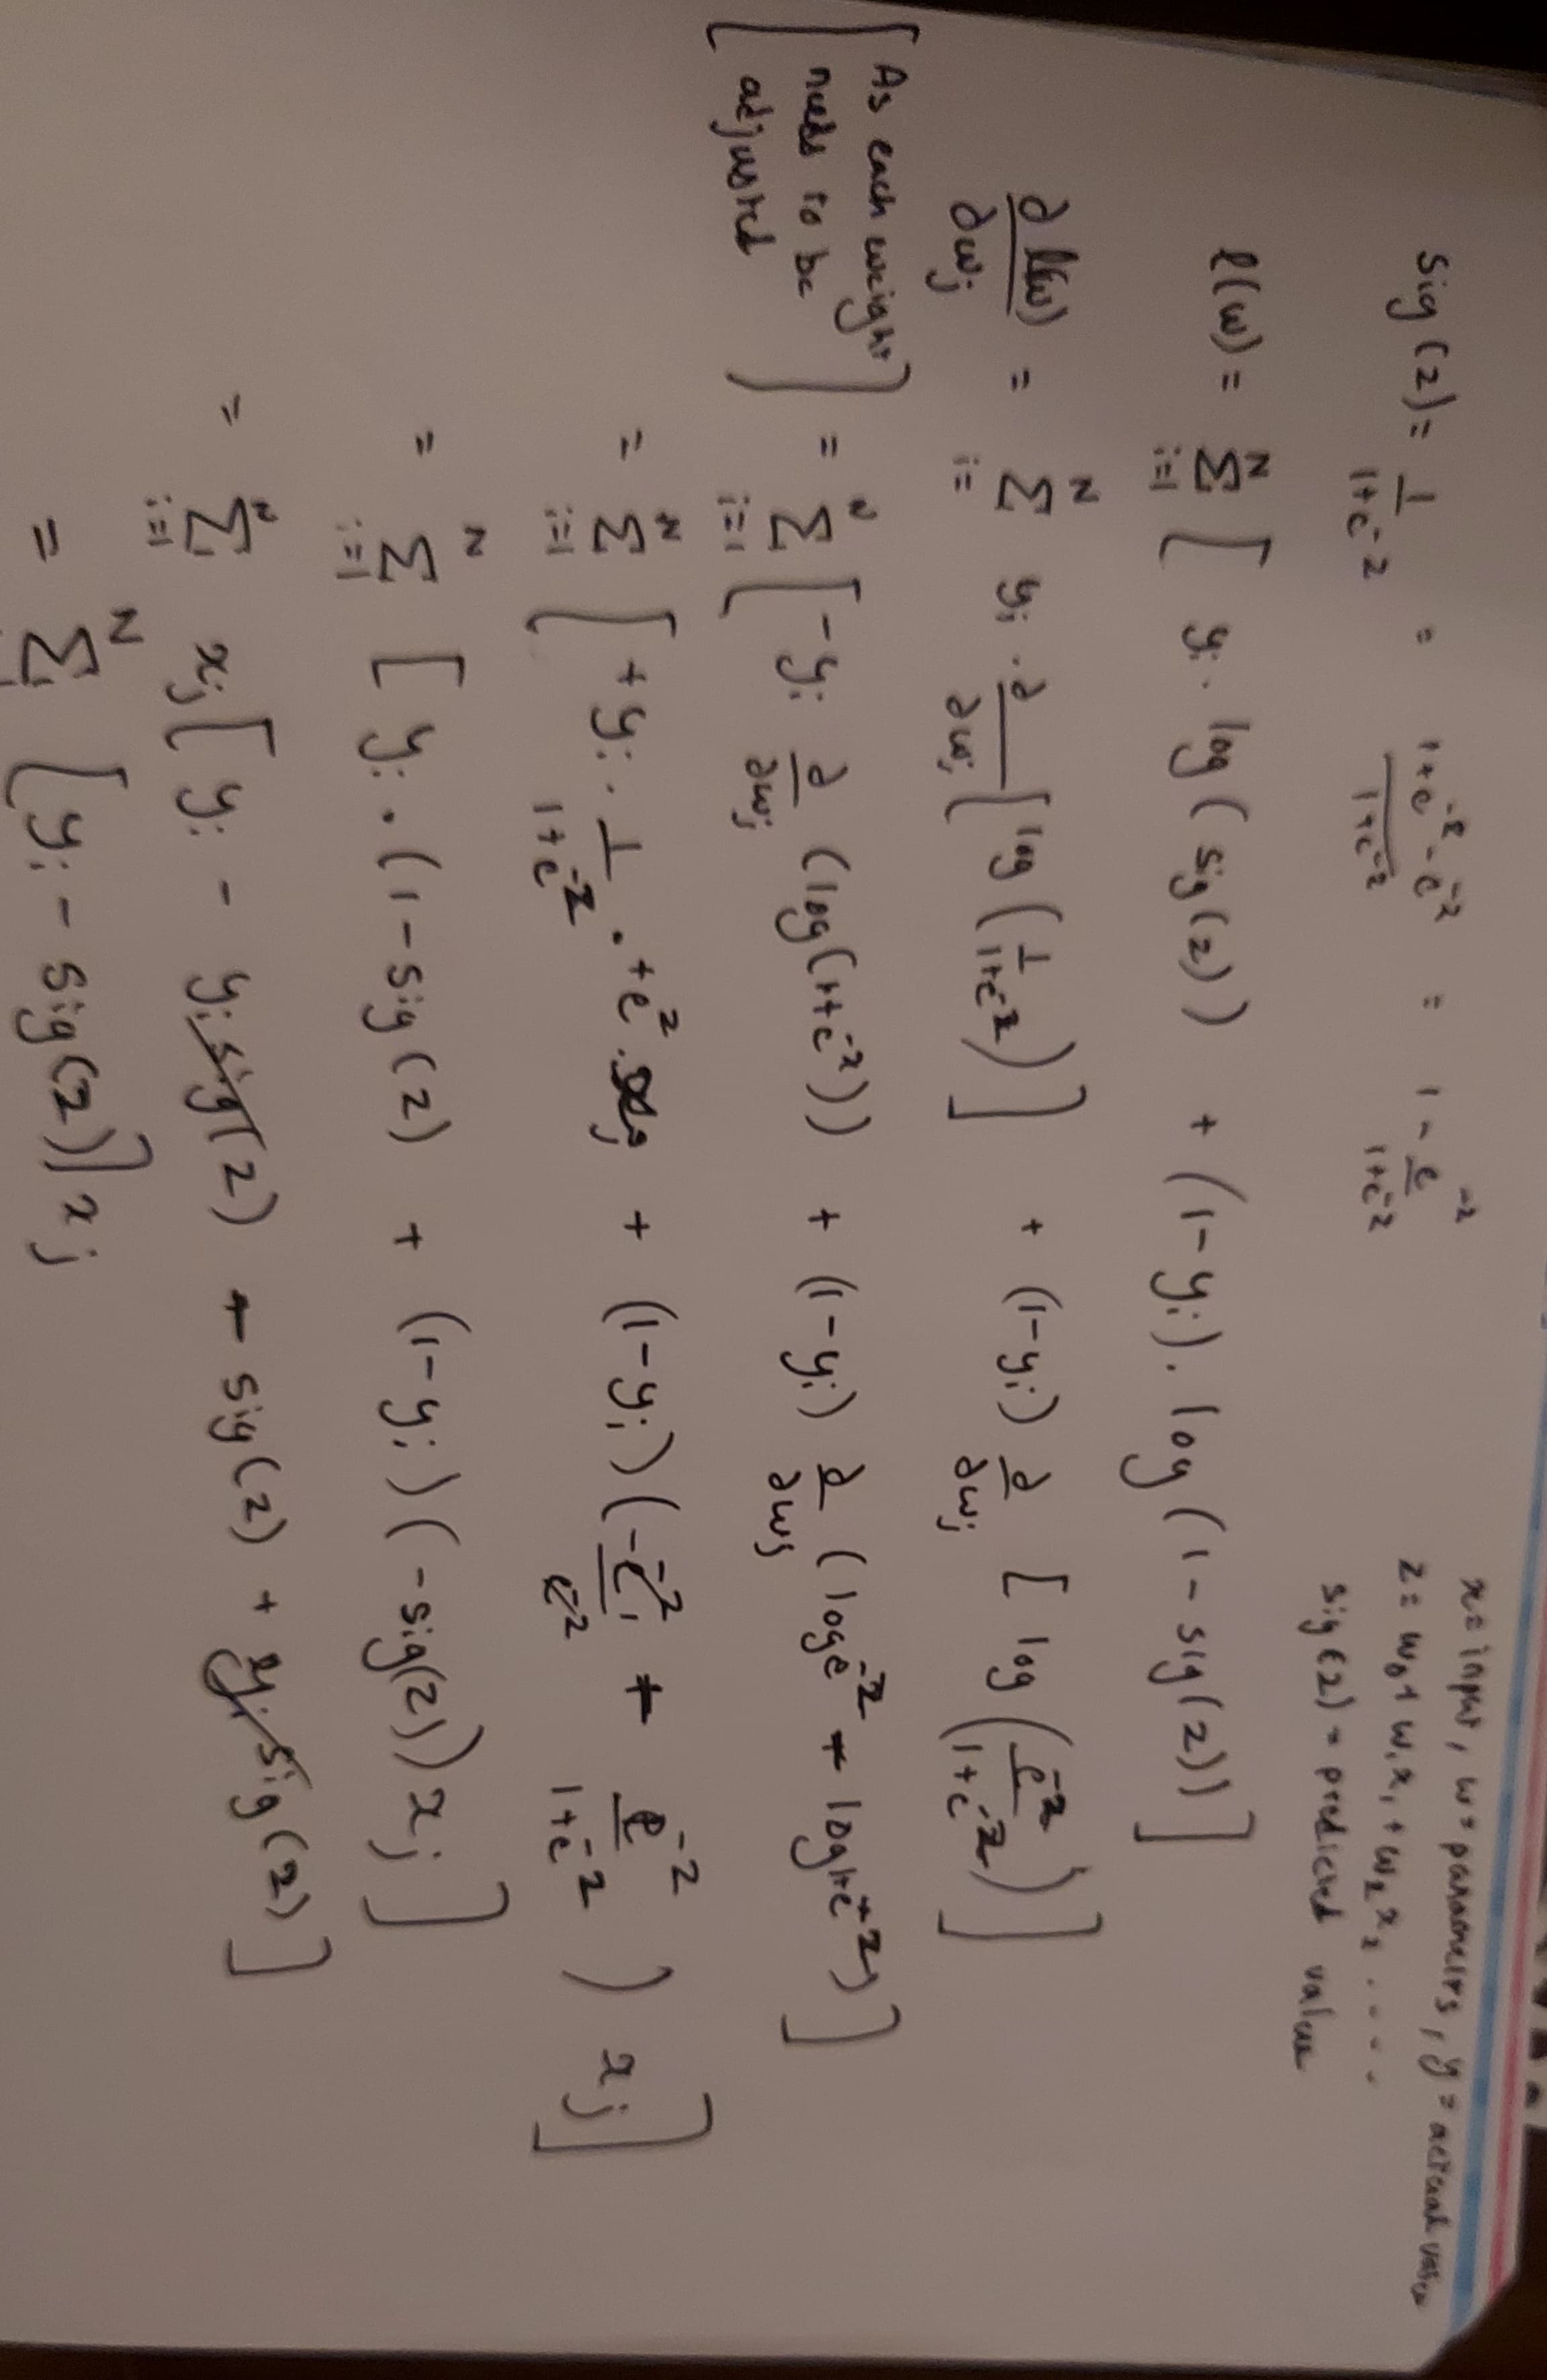 x = input, w = parameters, y = actual value
z = w₀ + w₁x₁ + w₂x₂ ....
sig(z) = predicted value
sig(z) = 1/(1+e^-z) = (1+e^-z - e^-z)/(1+e^-z) = 1 - e^-z/(1+e^-z)
l(w) = Σ_{i=1}^{N} [ yᵢ . log(sig(z)) + (1-yᵢ) . log(1-sig(z)) ]
∂l(w)/∂wⱼ = Σ_{i=}^{N} yᵢ . ∂/∂wⱼ [ log(1/(1+e^-z)) ] + (1-yᵢ) ∂/∂wⱼ [ log(e^-z/(1+e^-z)) ]
[ As each weight
needs to be
adjusted ]
= Σ_{i=1}^{N} [ -yᵢ ∂/∂wⱼ (log(1+e^-z)) + (1-yᵢ) ∂/∂wⱼ (log e^-z - log 1+e^-z) ]
= Σ_{i=1}^{N} [ +yᵢ . 1/(1+e^-z) . +e^-z . xⱼ + (1-yᵢ) (-e^-z/e^-z + e^-z/(1+e^-z)) xⱼ ]
= Σ_{i=1}^{N} [ yᵢ . (1-sig(z) + (1-yᵢ)(-sig(z)) xⱼ ]
= Σ_{i=1}^{N} xⱼ [ yᵢ - yᵢ sig(z) - sig(z) + yᵢ sig(z) ]
= Σ^{N} [ yᵢ - sig(z) ] xⱼ